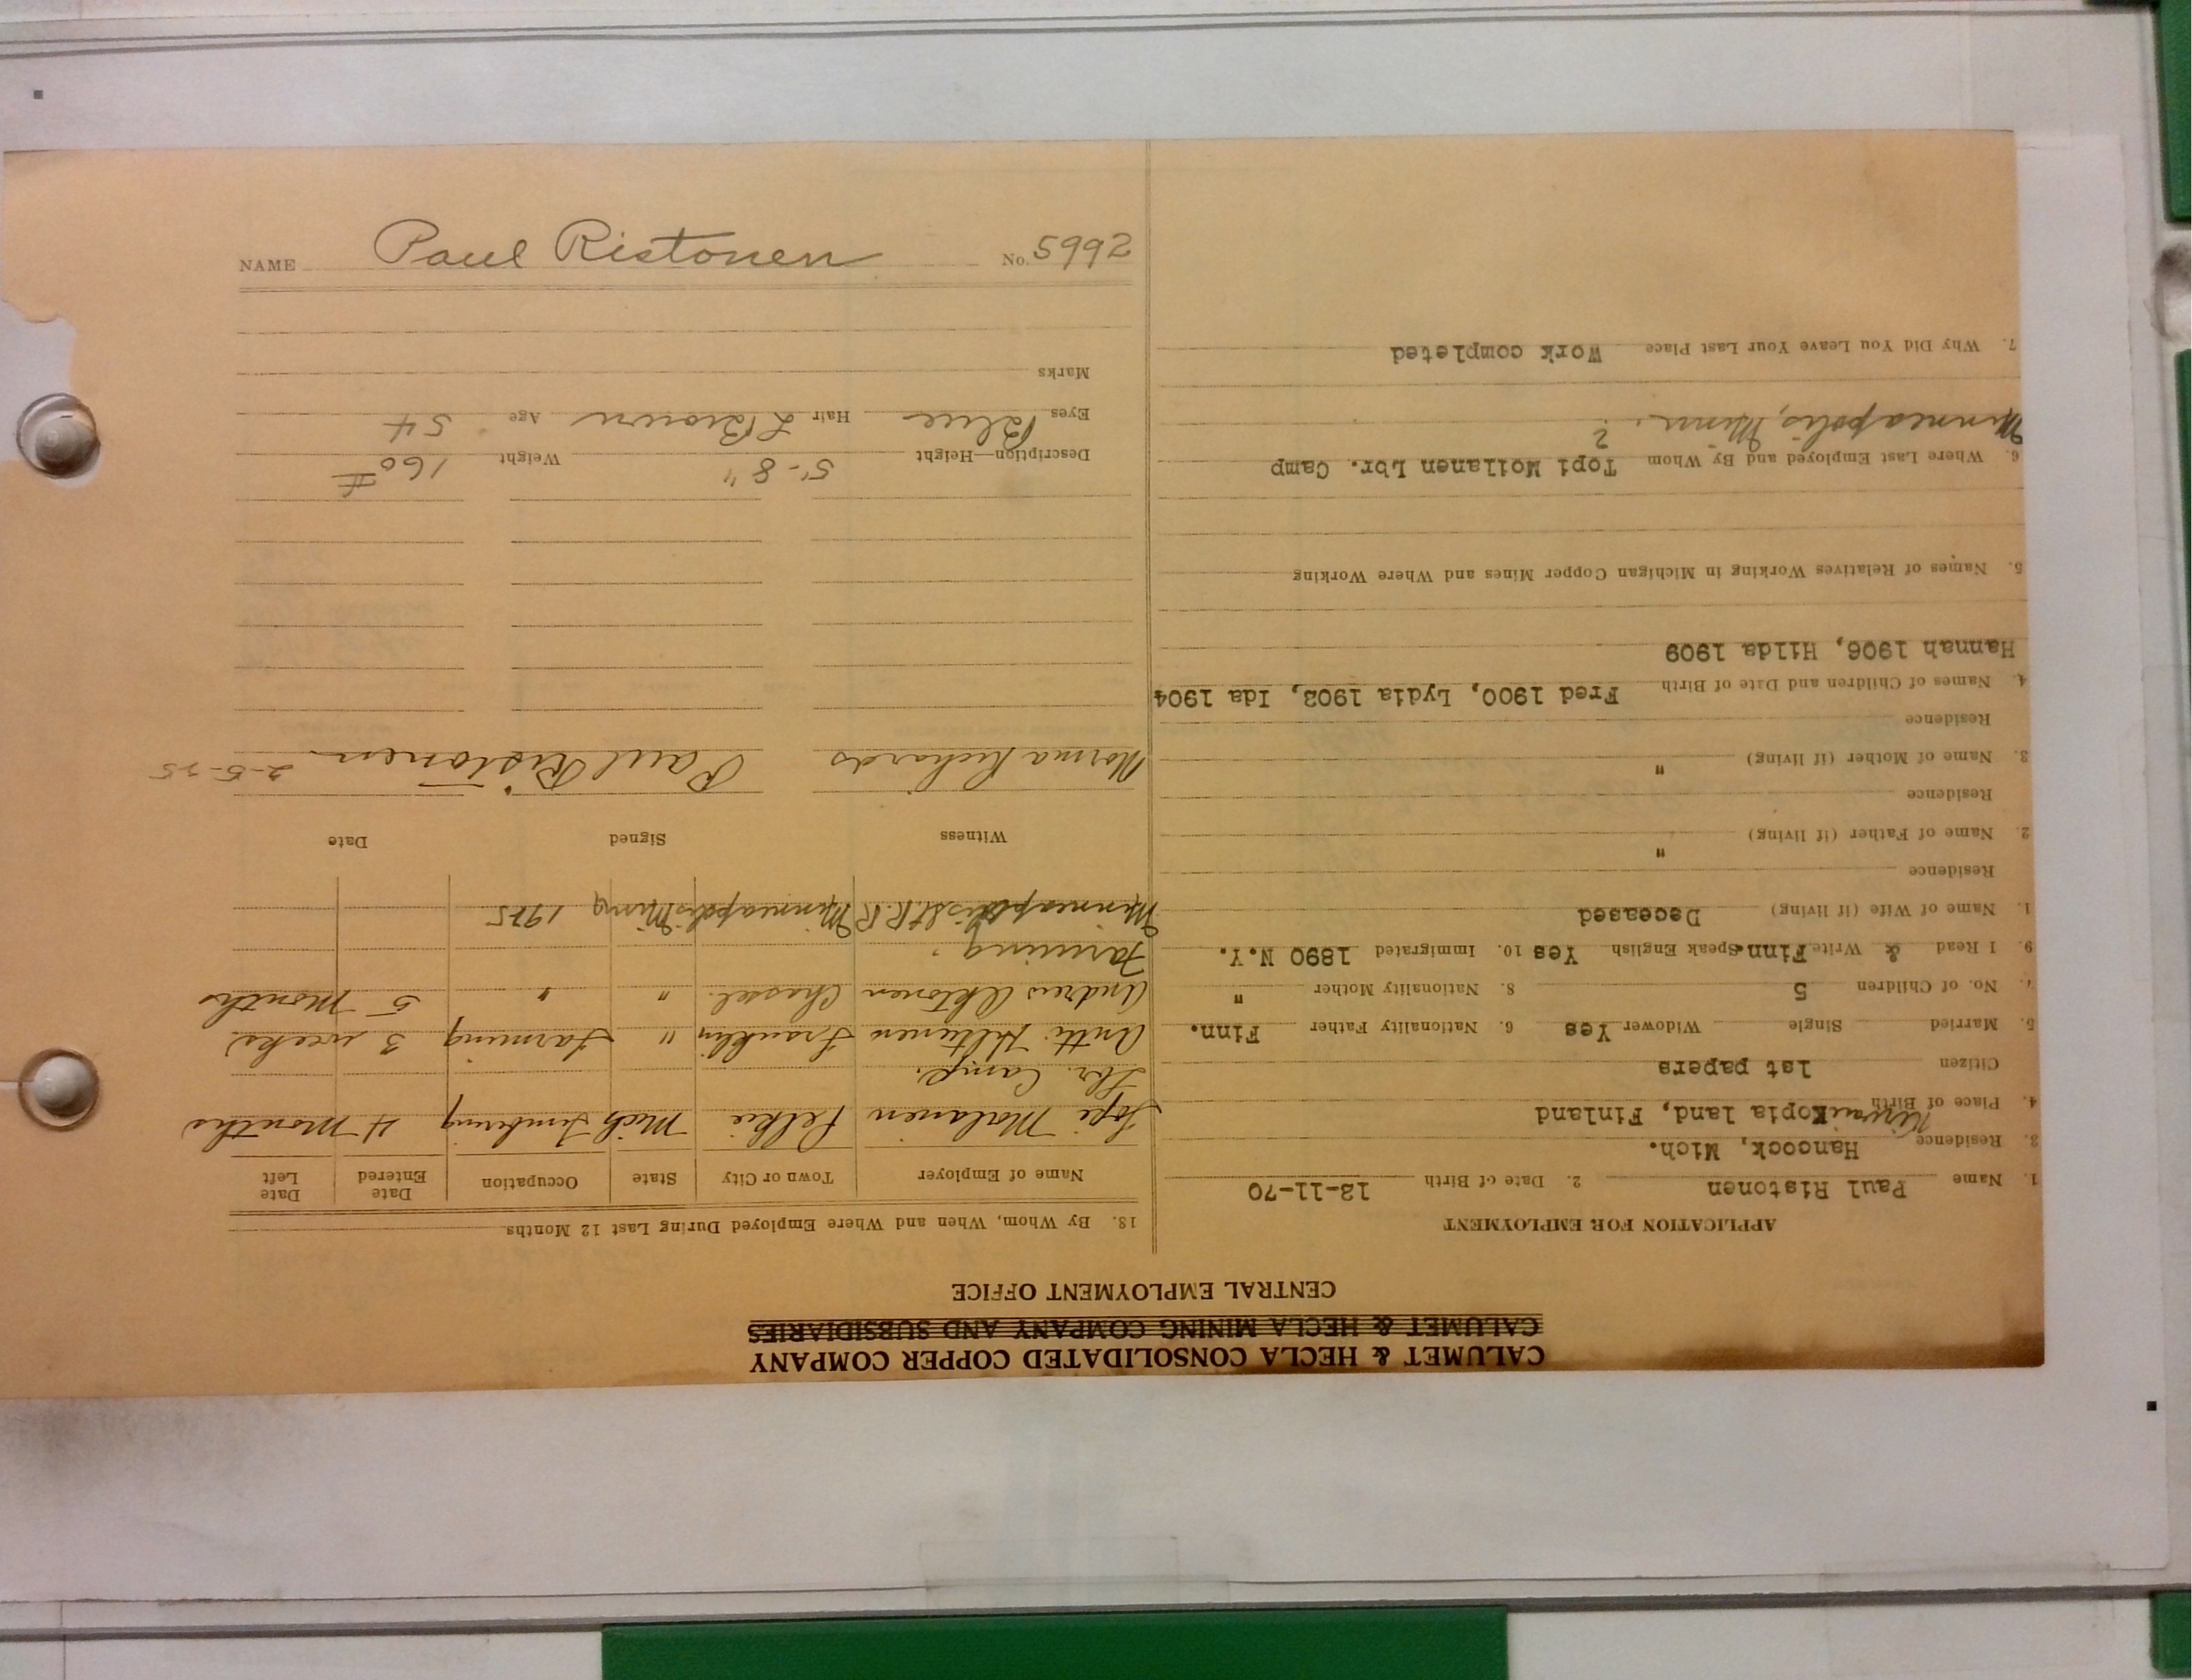 NAME Paul Ristonen No. 5992
CALUMET & HECLA CONSOLIDATED COPPER COMPANY
CALUMET & HECLA MINING COMPANY AND SUBSIDIARIES
CENTRAL EMPLOYMENT OFFICE
APPLICATION FOR EMPLOYMENT
1. Name Paul Ristonen 2. Date of Birth 12-11-70
3. Residence Hancock, Mich.
4. Place of Birth Kopia land, Finland
Citizen 1st papers
5. Married Single Widower Yes 6. Nationality Father Finn.
7. No. of Children 5 8. Nationality Mother "
9. I Read & Write Finn. Speak English Yes 10. Immigrated 1890 N.Y.
1. Name of Wife (if living) Deceased
Residence
2. Name of Father (if living) "
Residence
3. Name of Mother (if living) "
Residence
4. Names of Children and Date of Birth Fred 1900, Lydia 1903, Ida 1904
Hannah 1906, Hilda 1909
5. Names of Relatives Working in Michigan Copper Mines and Where Working
6. Where Last Employed and By Whom Topi Moilanen Lbr. Camp
Minneapolis, Minn. ?
7. Why Did You Leave Your Last Place Work completed
13. By Whom, When and Where Employed During Last 12 Months
Name of Employer Town or City State Occupation Date Entered Date Left
Topi Molanen Pelkie Mich 4 Months
Lbr. Camp.
Antti Hiltunen Franklin " Farming 3 weeks
Andrew Chassel. " " 5 Months
Farming.
Minneapolis St. R.R. Minneapolis Minn 1925
Witness Signed Date
Norma Richards Paul Ristonen 2-5-25
Description—Height 5-8" Weight 160#
Eyes Blue Hair L Brown Age 54
Marks